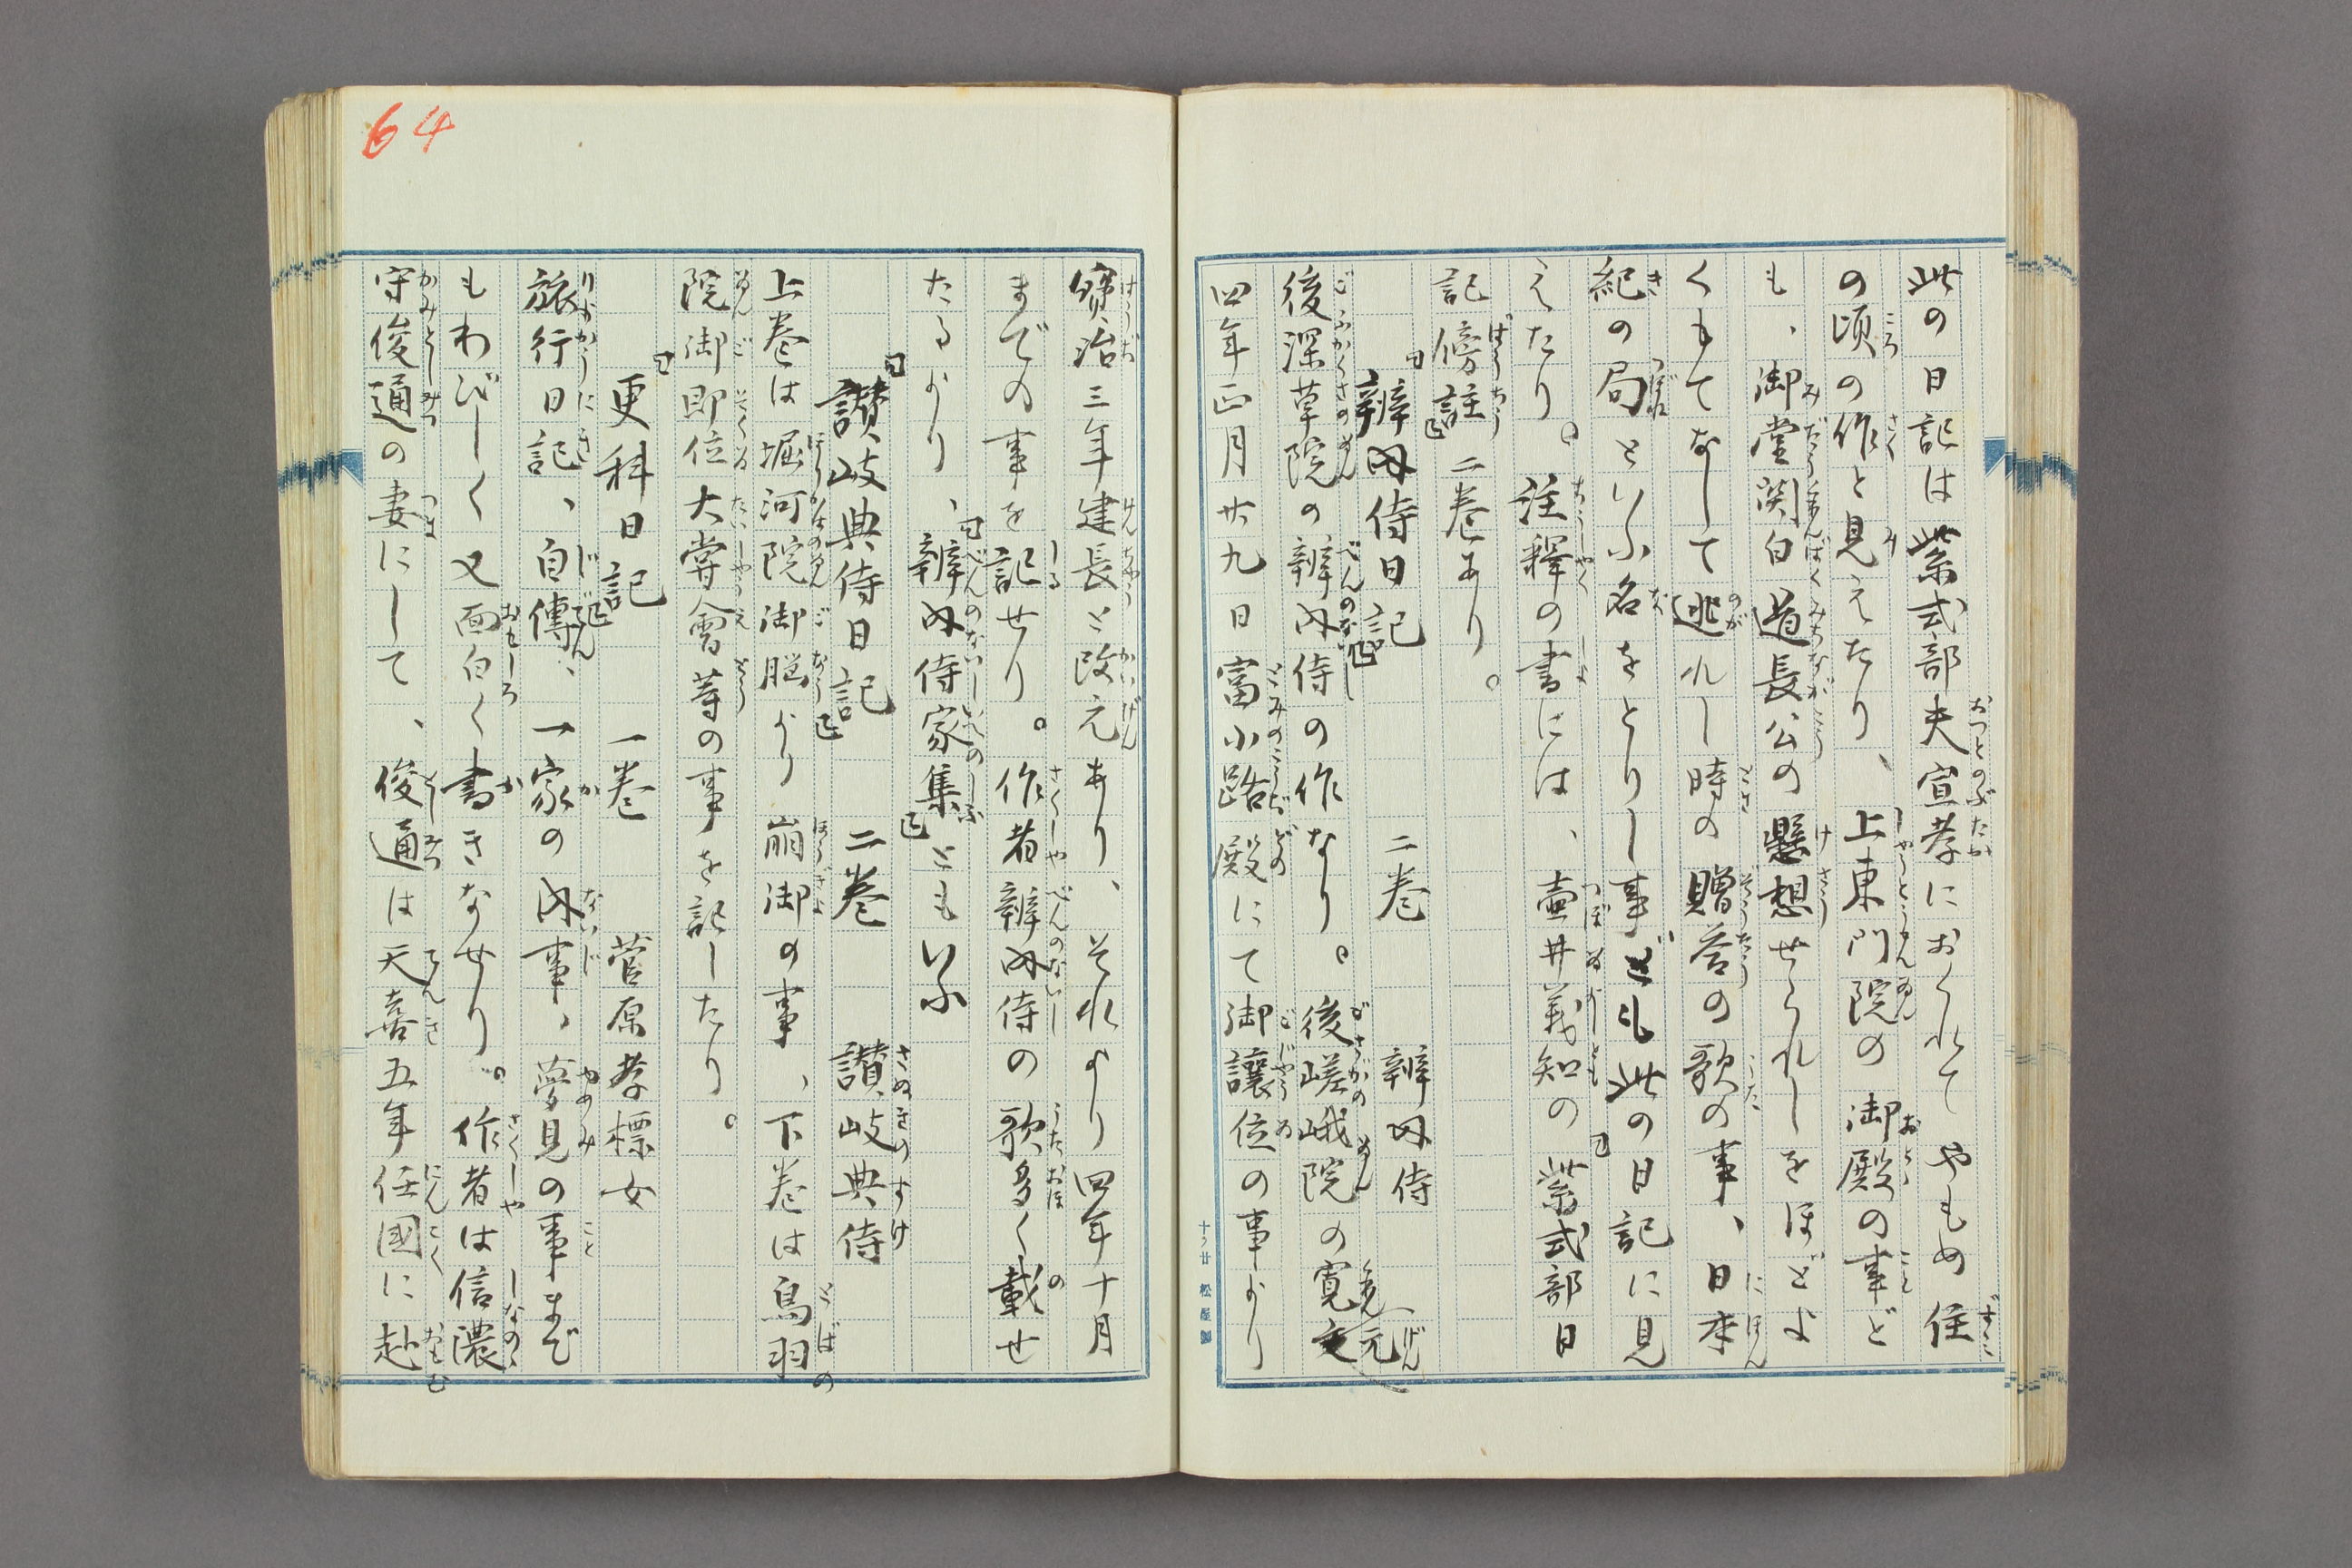 此の日記は紫式部夫宣孝におくれてやもめ住
の頃の作と見えたり、上東門院の御殿の事ど
も、御堂関白道長公の懸想せられしをほどよ
くもてなして逃れし時の贈答の歌の事、日本
紀の局といふ名をとりし事ども此の日記に見
えたり。註釋の書には、壷井義知の「紫式部日
記傍註」二卷あり。
「辨内侍日記」 二卷 辨内侍
後深草院の辨内侍の作なり。後嵯峨院の寛元
四年正月廿九日富小路殿にて御讓位の事より
十ノ廿 松屋製
64
寳治三年建長と改元あり、それより四年十月
までの事を記せり。作者辨内侍の歌多く載せ
たるより、「辨内侍家集」ともいふ
「讃岐典侍日記」 二卷 讃岐典侍
上卷は堀河院御脳より崩御の事、下卷は鳥羽
院御即位大甞會等の事を記したり。
「更科日記」 一卷 菅原孝標女
旅行日記、自傳、一家の内事、夢見の事まで
もわびしく又面白く書きなせり。作者は信濃
守俊通の妻にして、俊通は天喜五年任國に赴